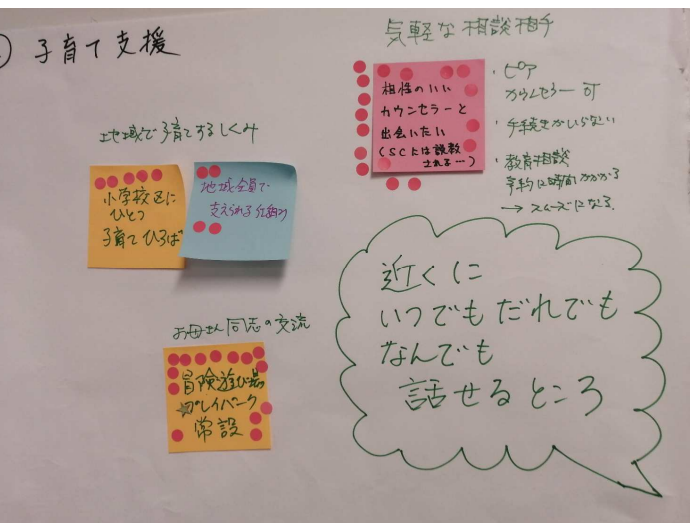 子育て支援
気軽な相談相手
相性のいい
カウンセラーと
出会いたい
(SCには説教
される…)
・ピア
カウンセラー可
・手続きがいらない
・教育相談
予約に時間かかる
→スムーズになる。
地域で子育てするしくみ
小学校区に
ひとつ
子育てひろば
地域全員で
支えられる仕組み
お母さん同志の交流
冒険遊び場
プレイパーク
常設
近くに
いつでもだれでも
なんでも
話せるところ